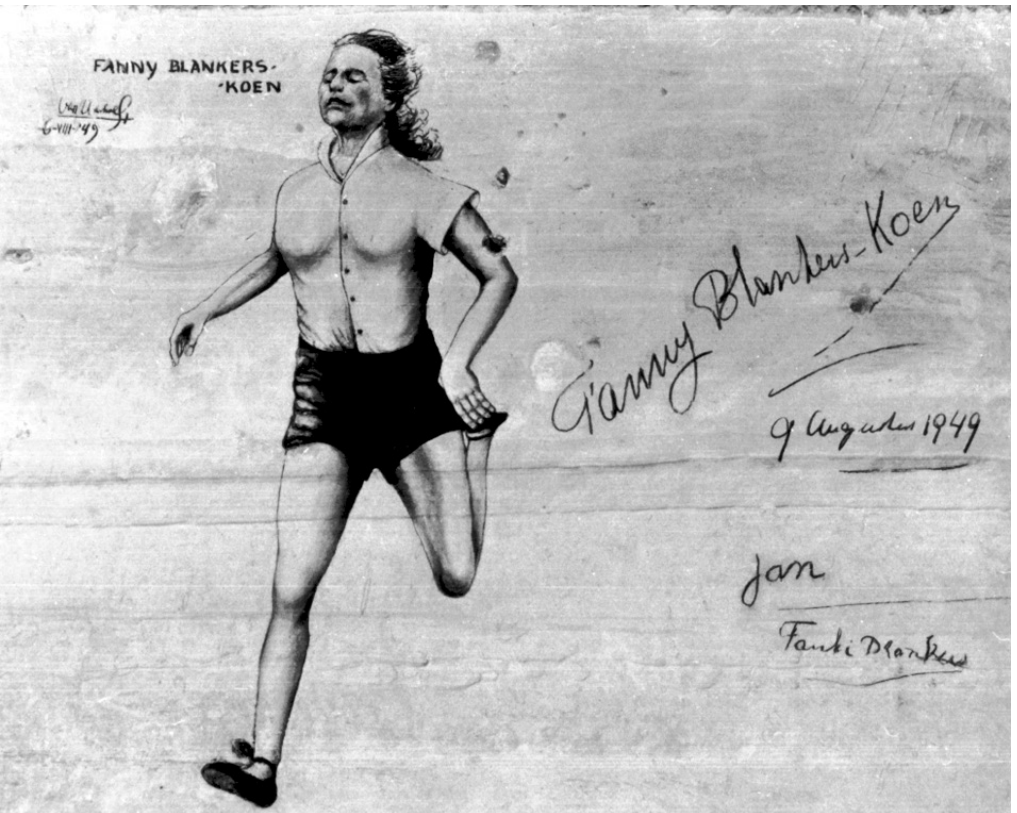 FANNY BLANKERS-
-KOEN
6-VIII-'49
Fanny Blankers-Koen
9 Augustus 1949
Jan